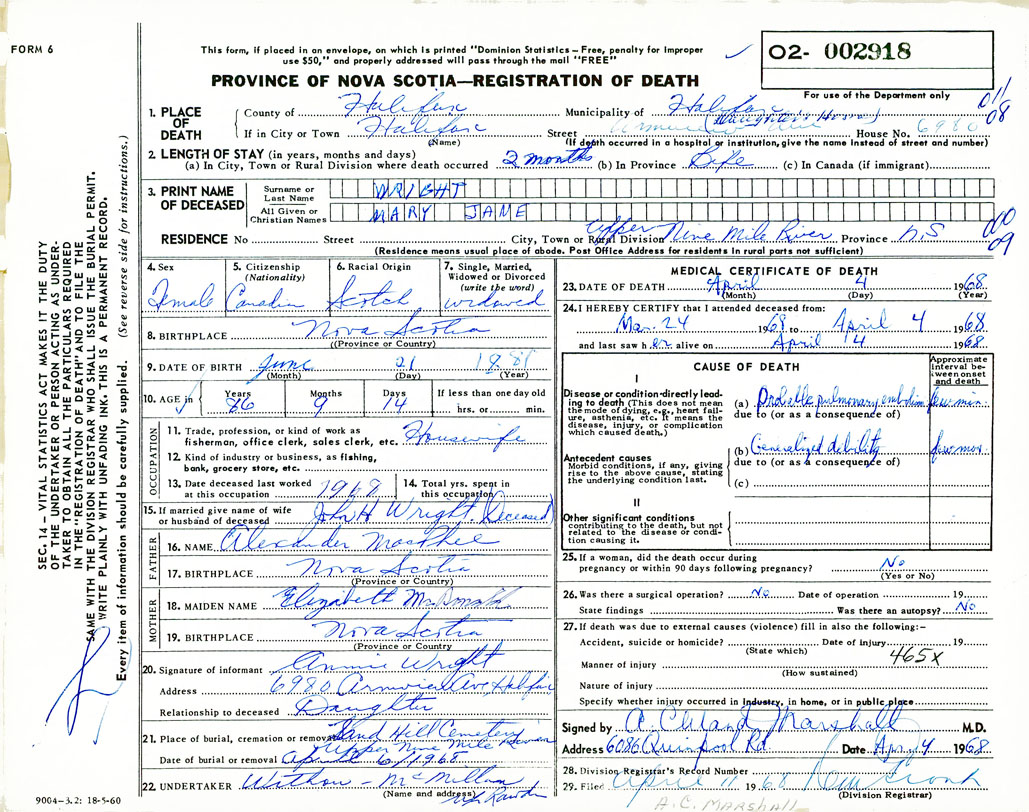 FORM 6
This form, if placed in an envelope, on which is printed "Dominion Statistics – Free, penalty for improper
use $50," and properly addressed will pass through the mail "FREE"
02- 002918
PROVINCE OF NOVA SCOTIA—REGISTRATION OF DEATH
For use of the Department only
1. PLACE OF DEATH
County of Halifax Municipality of Halifax
(Daughter's Home)
If in City or Town Halifax Street House No. 6980
(Name) (If death occurred in a hospital or institution, give the name instead of street and number)
2. LENGTH OF STAY (in years, months and days)
(a) In City, Town or Rural Division where death occurred 2 months (b) In Province Life (c) In Canada (if immigrant)
3. PRINT NAME OF DECEASED
Surname or Last Name WRIGHT
All Given or Christian Names MARY JANE
RESIDENCE No Street City, Town or Rural Division Upper Nine Mile River Province N.S
(Residence means usual place of abode. Post Office Address for residents in rural parts not sufficient)
09
08
4. Sex Female
5. Citizenship (Nationality) Canadian
6. Racial Origin Scotch
7. Single, Married, Widowed or Divorced (write the word) widowed
8. BIRTHPLACE Nova Scotia
(Province or Country)
9. DATE OF BIRTH June 21 1881
(Month) (Day) (Year)
10. AGE in Years 86 Months 9 Days 14 If less than one day old hrs. or min.
OCCUPATION
11. Trade, profession, or kind of work as
fisherman, office clerk, sales clerk, etc. Housewife
12. Kind of industry or business, as fishing,
bank, grocery store, etc.
13. Date deceased last worked at this occupation 1968
14. Total yrs. spent in this occupation
15. If married give name of wife
or husband of deceased John H Wright. Deceased
FATHER
16. NAME Alexander MacPhee
17. BIRTHPLACE Nova Scotia
(Province or Country)
MOTHER
18. MAIDEN NAME Elizabeth
19. BIRTHPLACE Nova Scotia
(Province or Country)
20. Signature of informant Annie Wright
Address 6980 Ave Halifax
Relationship to deceased Daughter
21. Place of burial, cremation or removal Hill Cemetery
Upper Nine Mile River
Date of burial or removal April 6/1968
22. UNDERTAKER McMillan
(Name and address) Rawdon
9004-3.2: 18-5-60
MEDICAL CERTIFICATE OF DEATH
23. DATE OF DEATH April 4 1968
(Month) (Day) (Year)
24. I HEREBY CERTIFY that I attended deceased from:
Mar. 24 1968 to April 4 1968
and last saw her alive on April 4 1968
CAUSE OF DEATH
Approximate interval between onset and death
I
Disease or condition directly leading to death (This does not mean the mode of dying, e.g., heart failure, asthenia, etc. It means the disease, injury, or complication which caused death.)
(a) Probable pulmonary embolism few min.
due to (or as a consequence of)
Antecedent causes
Morbid conditions, if any, giving rise to the above cause, stating the underlying condition last.
(b) Generalized debility few mos.
due to (or as a consequence of)
(c)
II
Other significant conditions
contributing to the death, but not related to the disease or condition causing it.
25. If a woman, did the death occur during
pregnancy or within 90 days following pregnancy? No
(Yes or No)
26. Was there a surgical operation? No Date of operation 19
State findings Was there an autopsy? No
27. If death was due to external causes (violence) fill in also the following:–
Accident, suicide or homicide? Date of injury 19
(State which) 465X
Manner of injury
(How sustained)
Nature of injury
Specify whether injury occurred in industry, in home, or in public place
Signed by A. Cleland Marshall M.D.
Address 6086 Quinpool Rd. Date Apr 4 1968
28. Division Registrar's Record Number
29. Filed April 11 1968
(Division Registrar)
A.C. MARSHALL
SEC. 14 – VITAL STATISTICS ACT MAKES IT THE DUTY
OF THE UNDERTAKER OR PERSON ACTING AS UNDER-
TAKER TO OBTAIN ALL THE PARTICULARS REQUIRED
IN THE "REGISTRATION OF DEATH" AND TO FILE THE
SAME WITH THE DIVISION REGISTRAR WHO SHALL ISSUE THE BURIAL PERMIT.
WRITE PLAINLY WITH UNFADING INK. THIS IS A PERMANENT RECORD.
Every item of information should be carefully supplied. (See reverse side for instructions.)